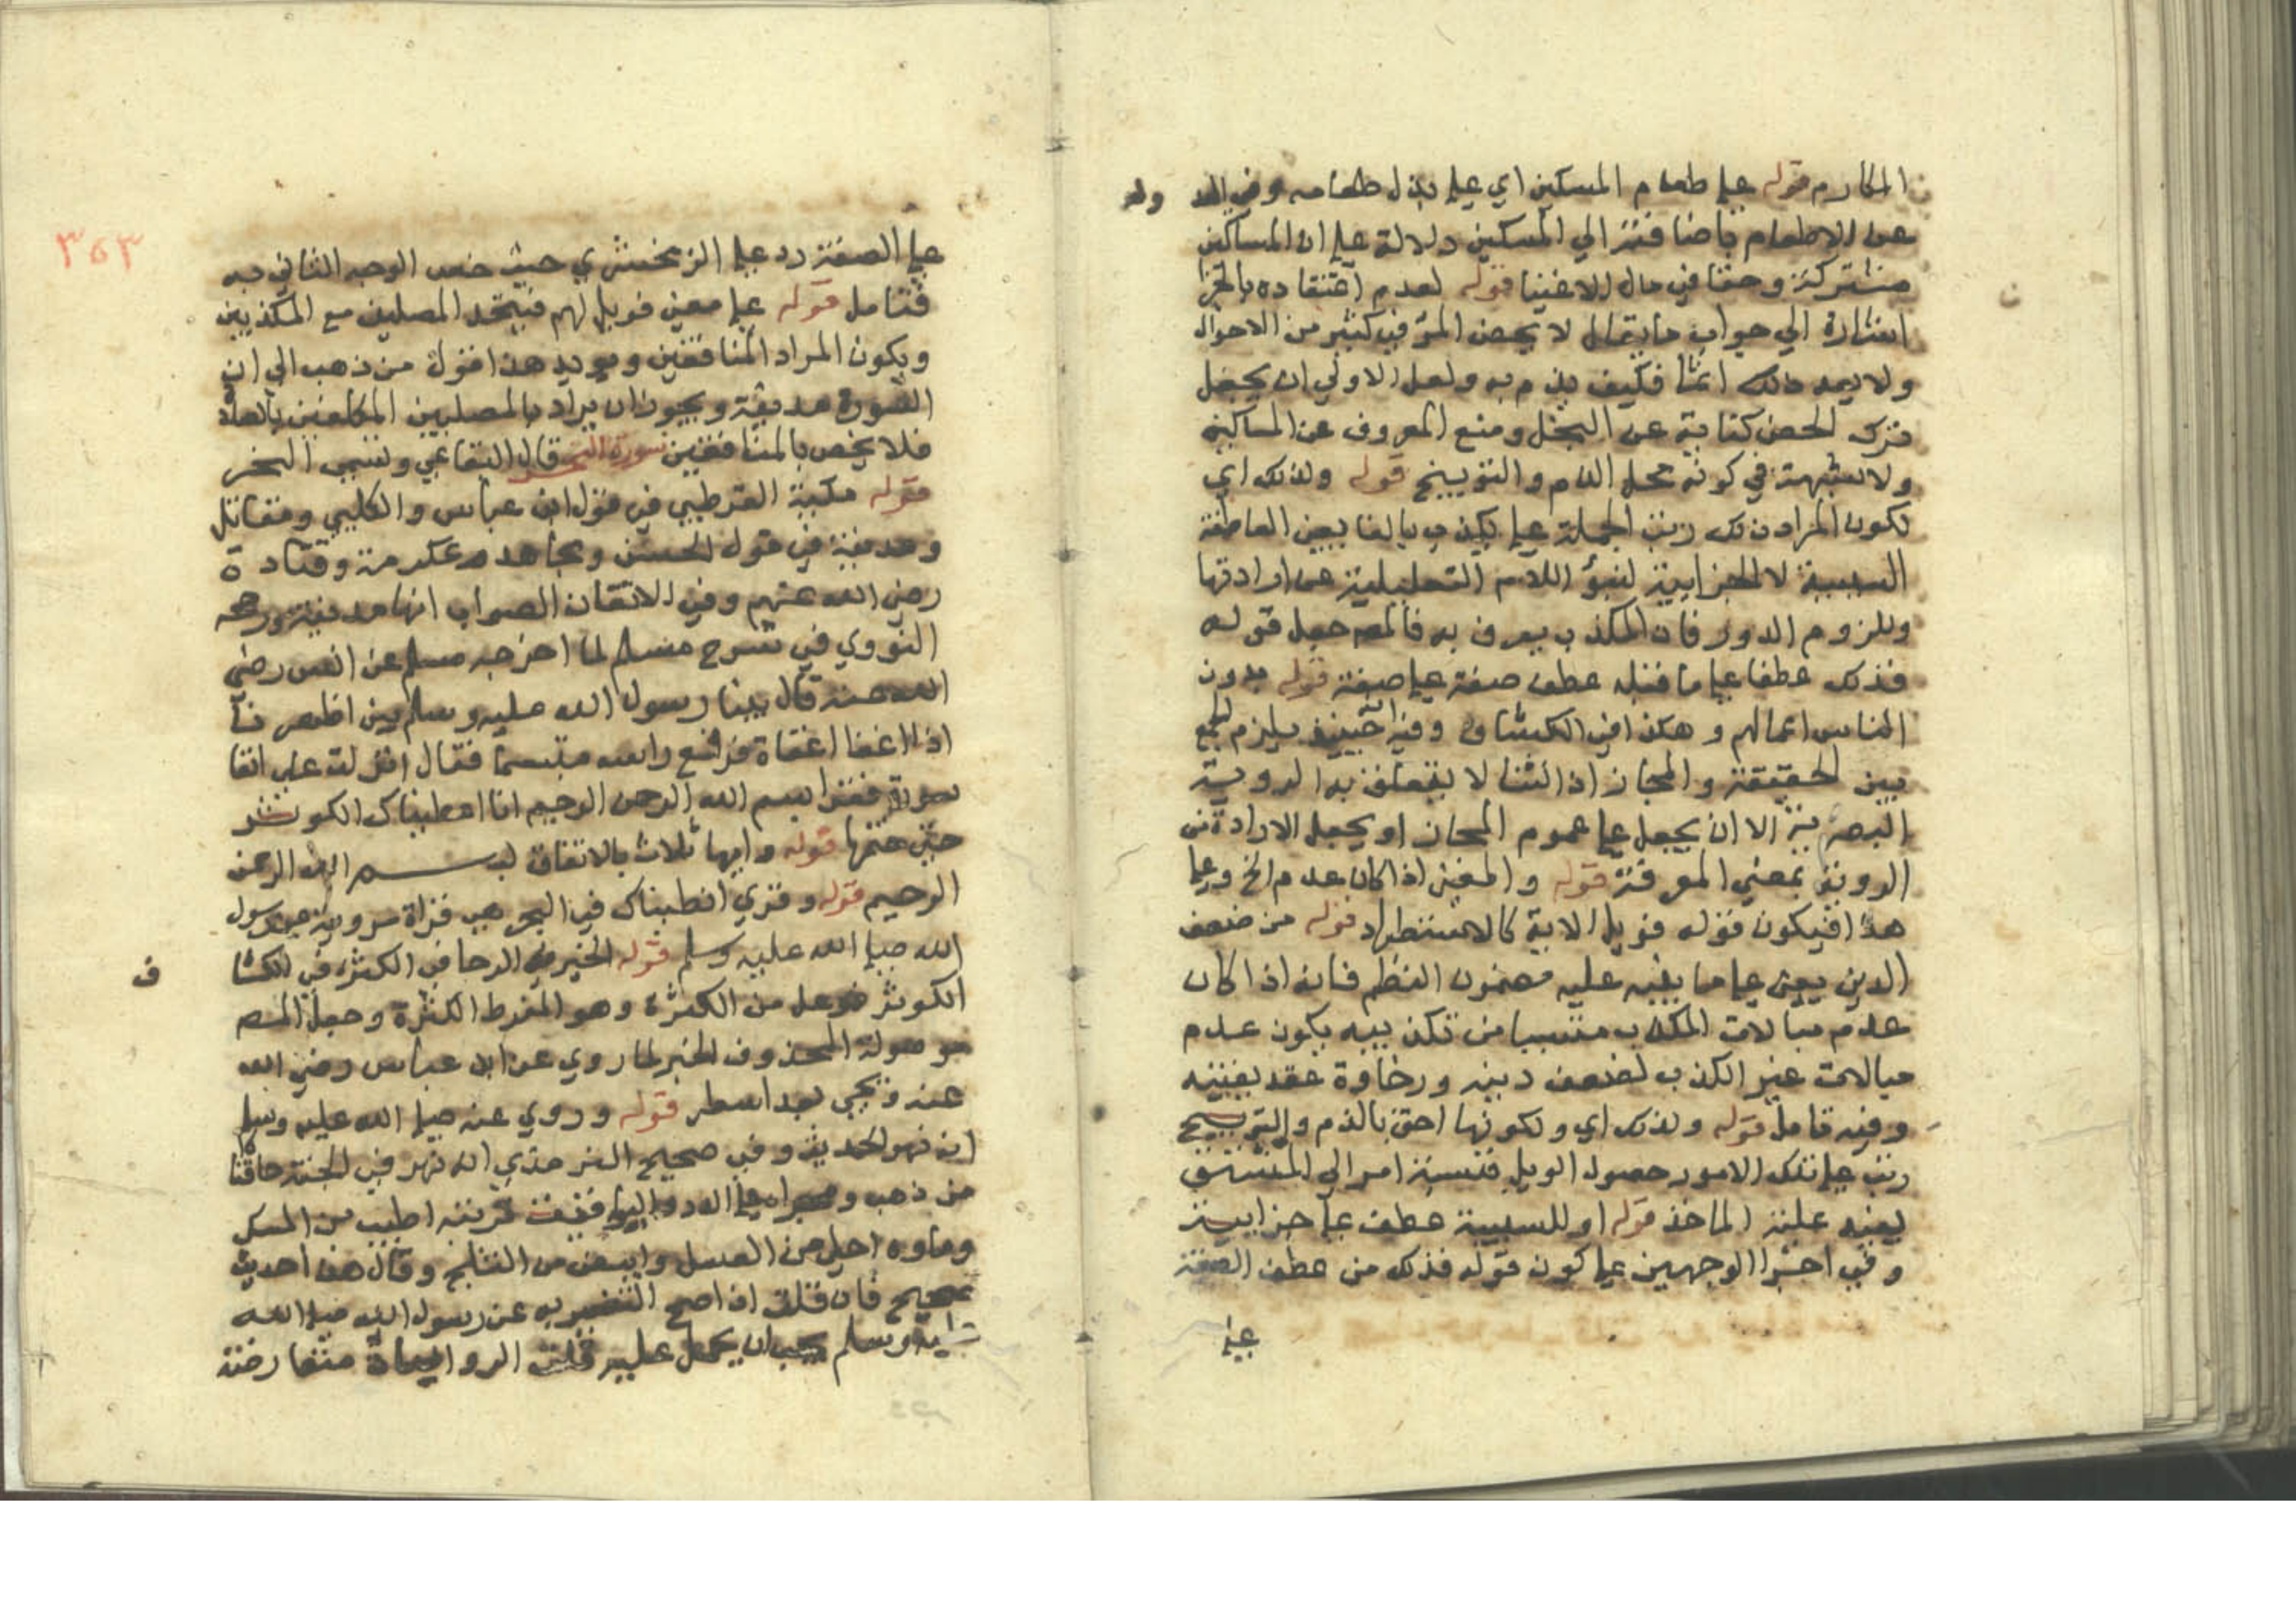 المكارم قوله على طعام المسكين اي على بذل طعامه وفي العد ول
عن الاطعام باضافته الي المسكين دلالة على ان المساكين
مشتركة وحقا في مال الاغنيا قوله لعدم اعتقاده بالجزا
اشارة الي جواب ما يقال لا يحض المرء في كثير من الاحوال
ولا يعد ذلك اثما فكيف يذم به ولعل الاولي ان يجعل
ترك الحض كناية عن البخل ومنع المعروف عن المساكين
ولا شبهة في كونه محل الذم والتوبيخ قوله ولذلك اي
لكون المراد ذلك رتب الجملة على يكذب بالفا يعني العاطفة
السببية لا الجزايية لنبو اللام التعليلية عن ارادتها
وللزوم الدور فان المكذب يعرف به فالمص جعل قوله
فذلك عطفا على ما قبله عطف صفة على صفة قوله يدون
الناس اعمالهم وهكذا في الكشاف وفيه حينيذ يلزم الجمع
بين الحقيقة والمجاز اذ الثنا لا يتعلق به الروية
البصرية الا ان يجعل على عموم المجاز او يجعل الارادة من
الروية بمعني المعرفة قوله والمعني اذا كان عدم الخ وعلى
هذا فيكون قوله فويل الاية كالاستطراد قوله من ضعف
الدين يعني على ما يفيه عليه مضمون النظم فانه اذا كان
عدم مبالات المكذب متسببا من تكذيبه يكون عدم
مبالات غير الكذب لضعف دينه ورخاوة عقد يقينيه
وفيه تامل قوله ولذلك اي ولكونها احق بالذم والتوبيخ
رتب على تلك الامور حصول الويل فنسبة امر الي المشتق
يفيد علية الماخذ قوله او للسببية عطف على جزايية
وفي اخر الوجهين على كون قوله فذلك من عطف الصفة
على
٣٥٣
على الصفة رد على الزمخشري حيث خص الوجه الثاني به
فتامل قوله على معني فويل لهم فيتحد المصلين مع المكذبين
ويكون المراد المنافقين ويويد هذا قول من ذهب الي ان
السورة مدنية ويجوز ان يراد بالمصلين المكلفين بالصلاة
فلا يخص بالمنافقين سورة النحر قال البقاعي وتسمي النحر
قوله مكية القرطبي في قول ابن عباس والكلبي ومقاتل
ومدنية في قول الحسن ومجاهد وعكرمة وقتادة
رضي الله عنهم وفي الاتقان الصواب انها مدنية ورجحه
النووي في شرح مسلم لما اخرجه مسلم عن انس رضي
الله عنه قال بينا رسول الله عليه وسلم بين اظهرنا
اذ اغفا اغفاة فرفع راسه متبسما فقال انزلت على انفا
سورة فقرا بسم الله الرحمن الرحيم انا اعطيناك الكوثر
حتي ختمها قوله وايها ثلاث بالاتفاق بسم الله الرحمن
الرحيم قوله وقري انطيناك في البحر هي قراة مروية عن رسول
الله صلى الله عليه وسلم قوله الخير الكثرة في الكشا ف
الكوثر فوعل من الكثرة وهو المفرط الكثرة وجعل المص
موصوفه المحذوف الخير لما روي عن ابن عباس رضي الله
عنه ويجي بعد اسطر قوله وروي عنه صلى الله عليه وسلم
انه نهر الحديث وفي صحيح الترمذي انه نهر في الجنة حافتا
من ذهب ومجراه على الدر والياقوت تربته اطيب من المسك
وماوه احلى من العسل وابيض من الثلج وقال هذا حديث
صحيح فان قلت اذا صح التفسير به عن رسول الله صلى الله
عليه وسلم يجب ان يحمل عليه قلت الروايات متعارضة